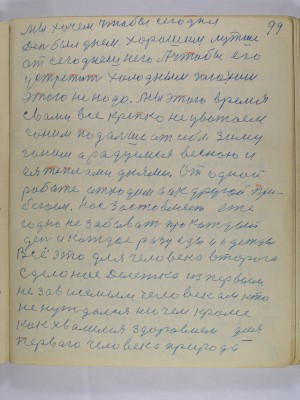 99
мы хочем чтобы сегодня
Ден был днем. хорошым лутше
от сегоднешнего А чтобы его
устретит холодным поганим
этого не надо. Мы этого время
с вами все крепко не уважаем
гоним подалше от себя зиму
гоним а радуемся весною и
ея теплыми днями. От одной
работе отходим а к другой при-
бегаем. Нас заставляет еже
годно не забыват про каждый
ден и каждое разу еды и одежды
Всё это для человека второго
сделоное Далеко из первым
не зависемым человекам кто
не нуждался ни чем кроме
как хвалился здоровием для
первого человека природа